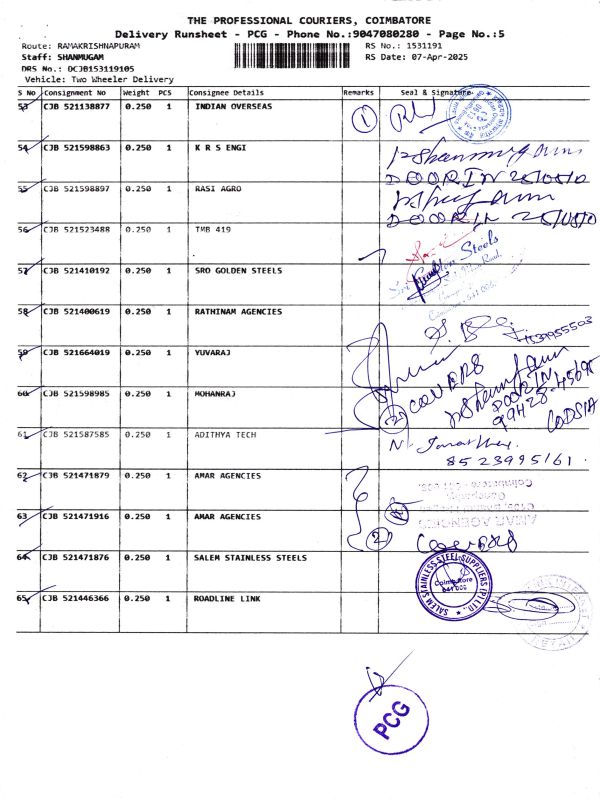 THE PROFESSIONAL COURIERS, COIMBATORE
Delivery Runsheet - PCG - Phone No.:9047080280 - Page No.:5
Route: RAMAKRISHNAPURAM RS No.: 1531191
Staff: SHANMUGAM RS Date: 07-Apr-2025
DRS No.: DCJB153119105
Vehicle: Two Wheeler Delivery
S No Consignment No Weight PCS Consignee Details Remarks Seal & Signature
53 CJB 521138877 0.250 1 INDIAN OVERSEAS 1
54 CJB 521598863 0.250 1 K R S ENGI
DOORIN
55 CJB 521598897 0.250 1 RASI AGRO
DOORIN
56 CJB 521523488 0.250 1 TMB 419
57 CJB 521410192 0.250 1 SRO GOLDEN STEELS
58 CJB 521400619 0.250 1 RATHINAM AGENCIES
59 CJB 521664019 0.250 1 YUVARAJ
COVERS
60 CJB 521598985 0.250 1 MOHANRAJ
DOORIN
CODSIA
61 CJB 521587585 0.250 1 ADITHYA TECH
8523995161
62 CJB 521471879 0.250 1 AMAR AGENCIES
63 CJB 521471916 0.250 1 AMAR AGENCIES
AMAR AGENCIES
2
64 CJB 521471876 0.250 1 SALEM STAINLESS STEELS
SALEM STAINLESS STEEL SUPPLIERS (P) LTD.
65 CJB 521446366 0.250 1 ROADLINE LINK
PCG